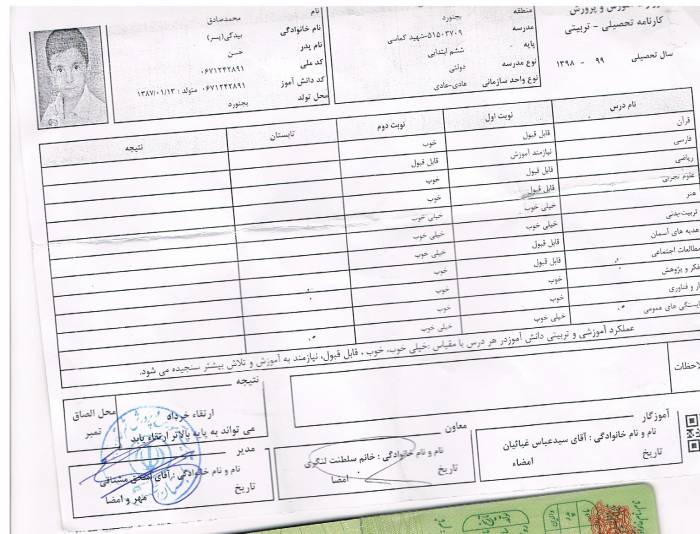 آموزش و پرورش
کارنامه تحصیلی - تربیتی
سال تحصیلی ۹۹ - ۱۳۹۸
منطقه بجنورد
مدرسه ۵۱۵۰۳۷۰۹-شهید کماسی
پایه ششم ابتدایی
نوع مدرسه دولتی
نوع واحد سازمانی عادی-عادی
نام محمدصادق
نام خانوادگی بیدکی(پسر)
نام پدر حسن
کد ملی ۰۶۷۱۲۴۲۸۹۱
کد دانش آموز ۰۶۷۱۲۴۲۸۹۱ متولد : ۱۳۸۷/۰۱/۱۳
محل تولد بجنورد
نام درس نوبت اول نوبت دوم تابستان نتیجه
قرآن قابل قبول خوب
فارسی نیازمند آموزش قابل قبول
ریاضی قابل قبول خوب
علوم تجربی قابل قبول خوب
هنر خیلی خوب خیلی خوب
تربیت‌بدنی خیلی خوب خیلی خوب
هدیه های آسمان قابل قبول خیلی خوب
مطالعات اجتماعی قابل قبول خوب
فکر و پژوهش خوب خوب
ار و فناوری خوب خوب
ایستگی های عمومی خیلی خوب خیلی خوب
عملکرد آموزشی و تربیتی دانش آموزدر هر درس با مقیاس :خیلی خوب، خوب ، قابل قبول، نیازمند به آموزش و تلاش بیشتر سنجیده می شود.
لاحظات
نتیجه
ارتقاء خرداد
می تواند به پایه بالاتر ارتقاء یابد
محل الصاق
تمبر
آموزگار
نام و نام خانوادگی : آقای سیدعباس غیاثیان
امضاء تاریخ
معاون
نام و نام خانوادگی : خانم سلطنت لنگری
امضا تاریخ
مدیر
نام و نام خانوادگی : آقای
تاریخ
مهر و امضا